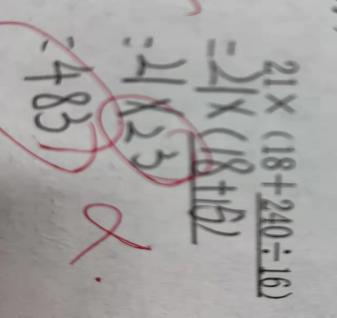 21×(18+240÷16)
=21×(18+15)
=21×23
=483